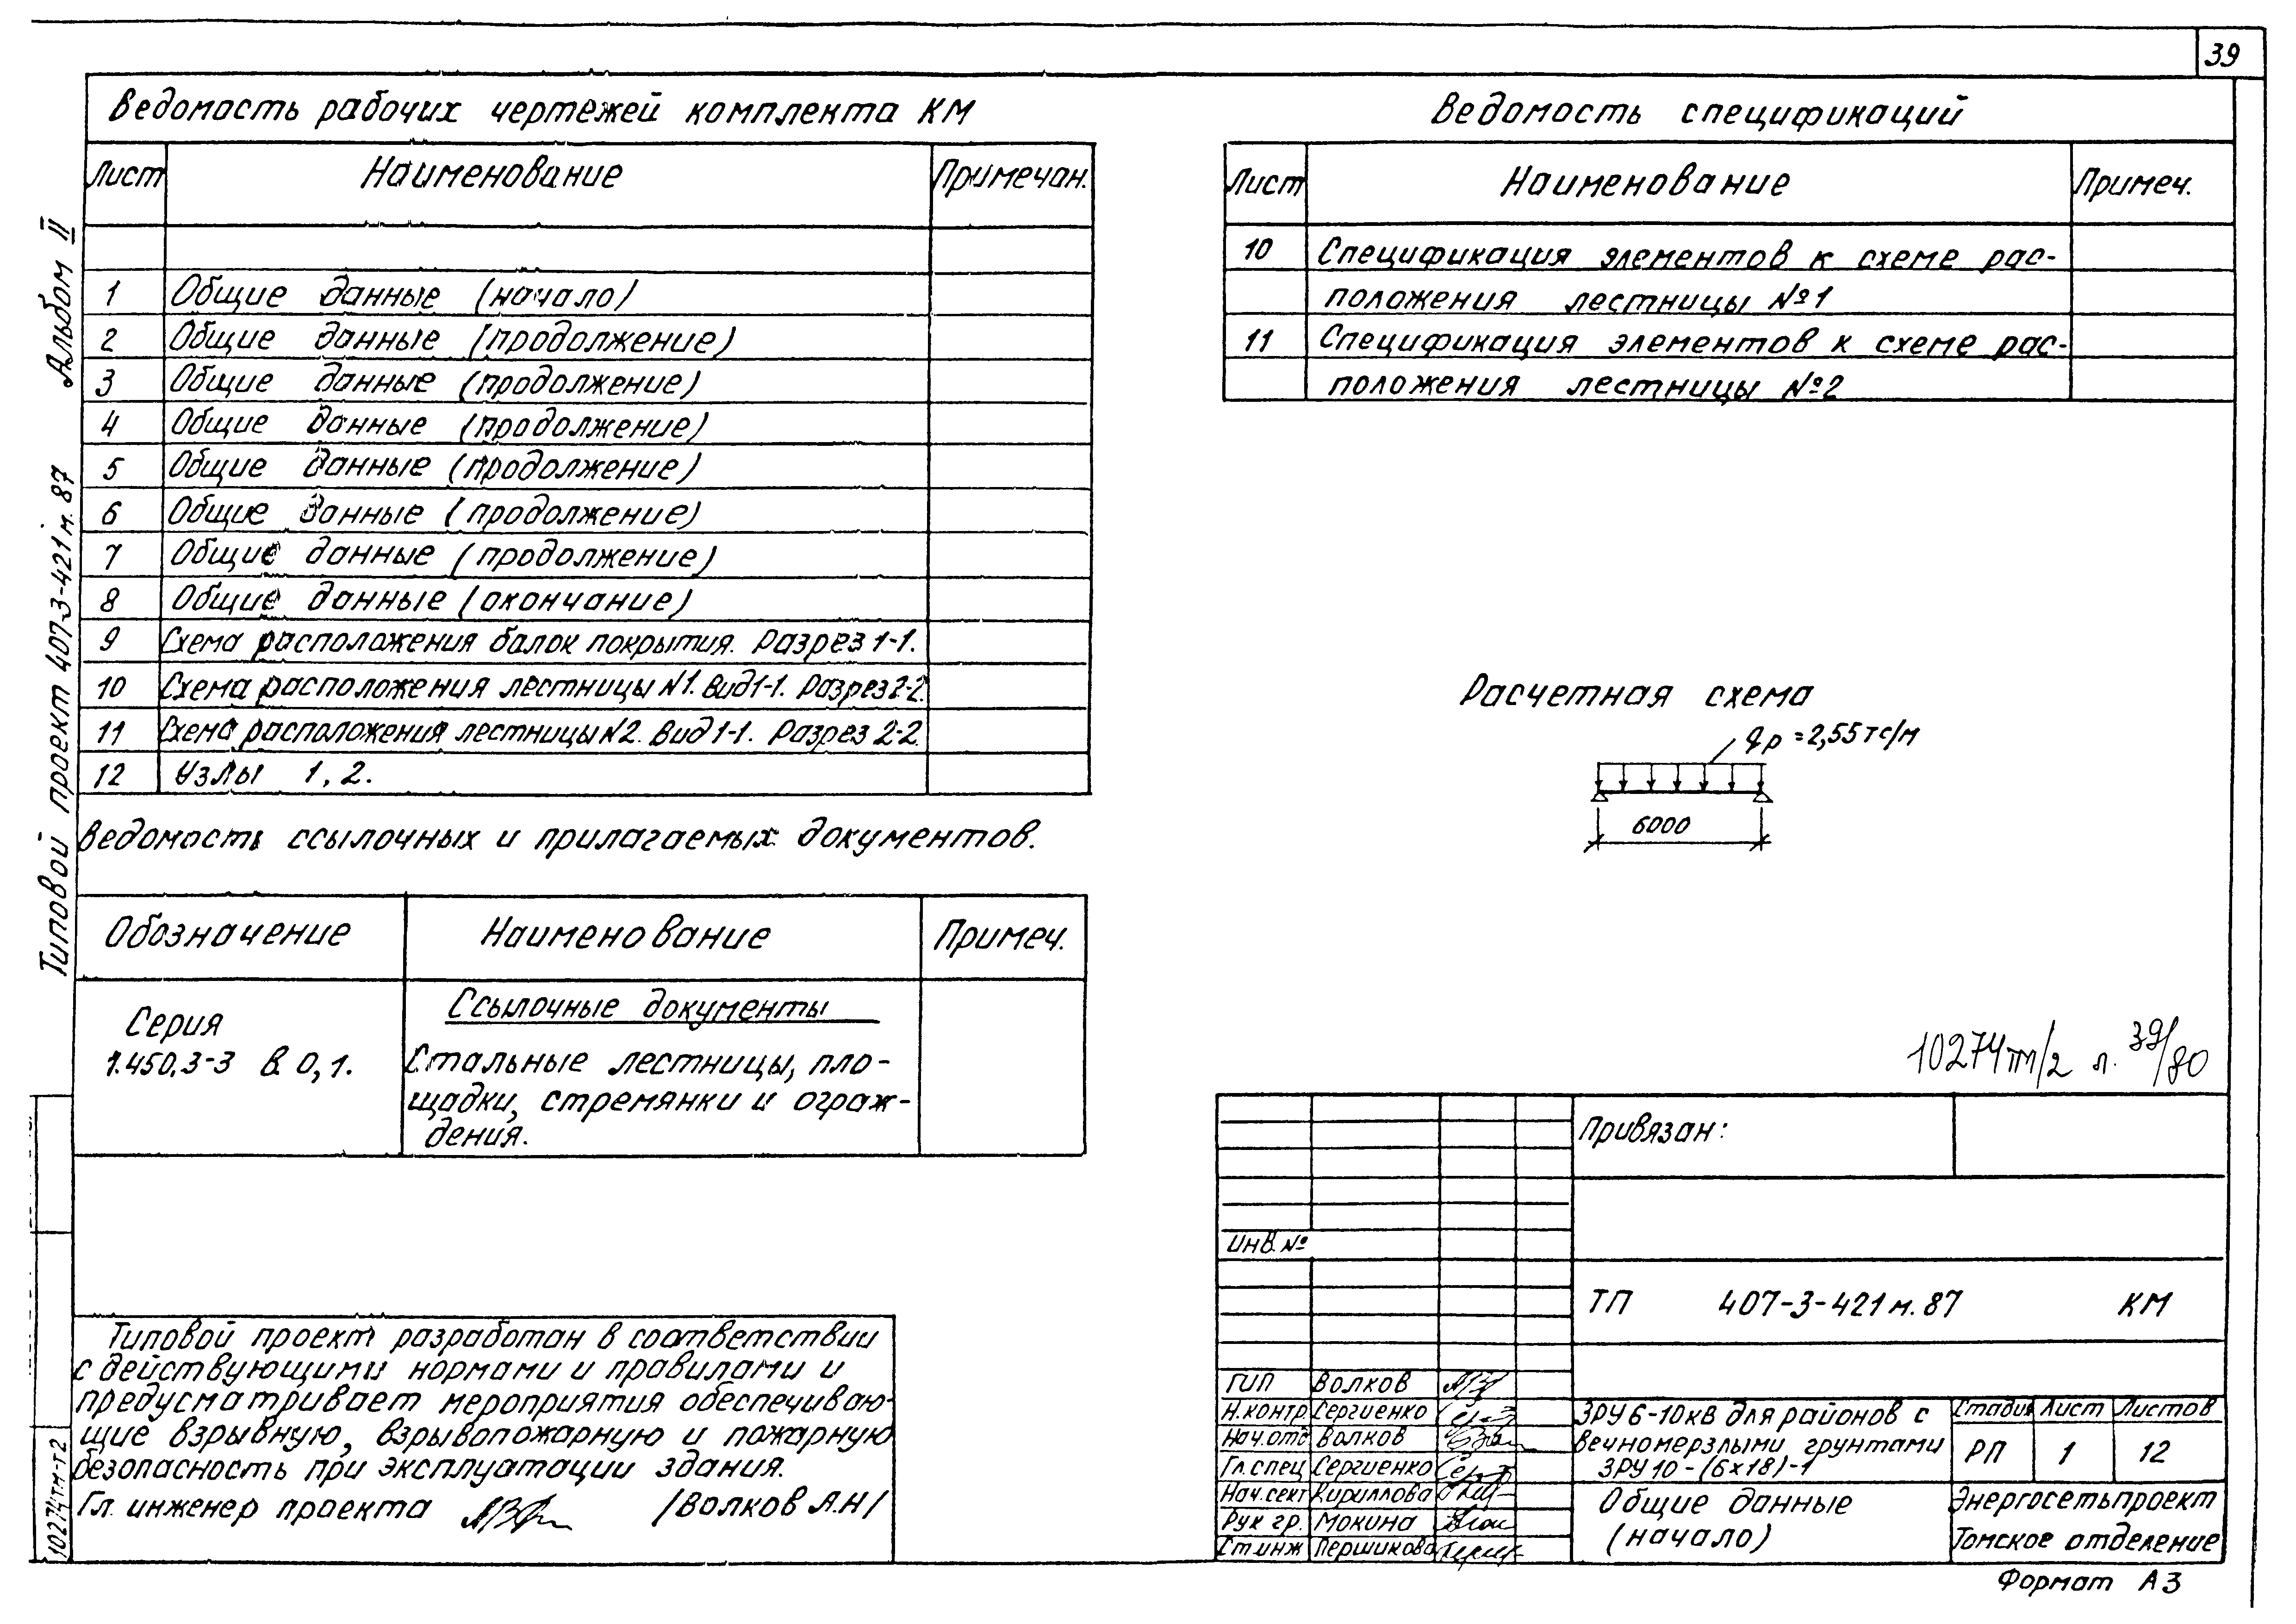 39
Ведомость рабочих чертежей комплекта КМ
Лист Наименование Примечан.
1 Общие данные (начало)
2 Общие данные (продолжение)
3 Общие данные (продолжение)
4 Общие данные (продолжение)
5 Общие данные (продолжение)
6 Общие данные (продолжение)
7 Общие данные (продолжение)
8 Общие данные (окончание)
9 Схема расположения балок покрытия. Разрез 1-1.
10 Схема расположения лестницы N1. Вид 1-1. Разрез 2-2.
11 Схема расположения лестницы N2. Вид 1-1. Разрез 2-2.
12 Узлы 1, 2.
Ведомость ссылочных и прилагаемых документов.
Обозначение Наименование Примеч.
Ссылочные документы
Серия
1.450.3-3 в. 0,1. Стальные лестницы, пло-
щадки, стремянки и ограж-
дения.
Типовой проект разработан в соответствии
с действующими нормами и правилами и
предусматривает мероприятия обеспечиваю-
щие взрывную, взрывопожарную и пожарную
безопасность при эксплуатации здания.
Гл. инженер проекта /Волков А.Н/
Типовой проект 407-3-421м.87 Альбом II
10274тм-т2
Ведомость спецификаций
Лист Наименование Примеч.
10 Спецификация элементов к схеме рас-
положения лестницы №1
11 Спецификация элементов к схеме рас-
положения лестницы №2
Расчетная схема
qр =2,55тс/м
6000
10274тм/2 л. 39/80
Привязан:
Инв.№
ТП 407-3-421м.87 КМ
ГИП Волков
Н.контр Сергиенко
Нач.отд Волков
Гл.спец Сергиенко
Нач.сект Кириллова
Рук гр. Мокина
Ст.инж Першикова
ЗРУ 6-10кВ для районов с
вечномерзлыми грунтами
ЗРУ 10-(6х18)-1
Стадия Лист Листов
РП 1 12
Общие данные
(начало)
Энергосетьпроект
Томское отделение
Формат А3